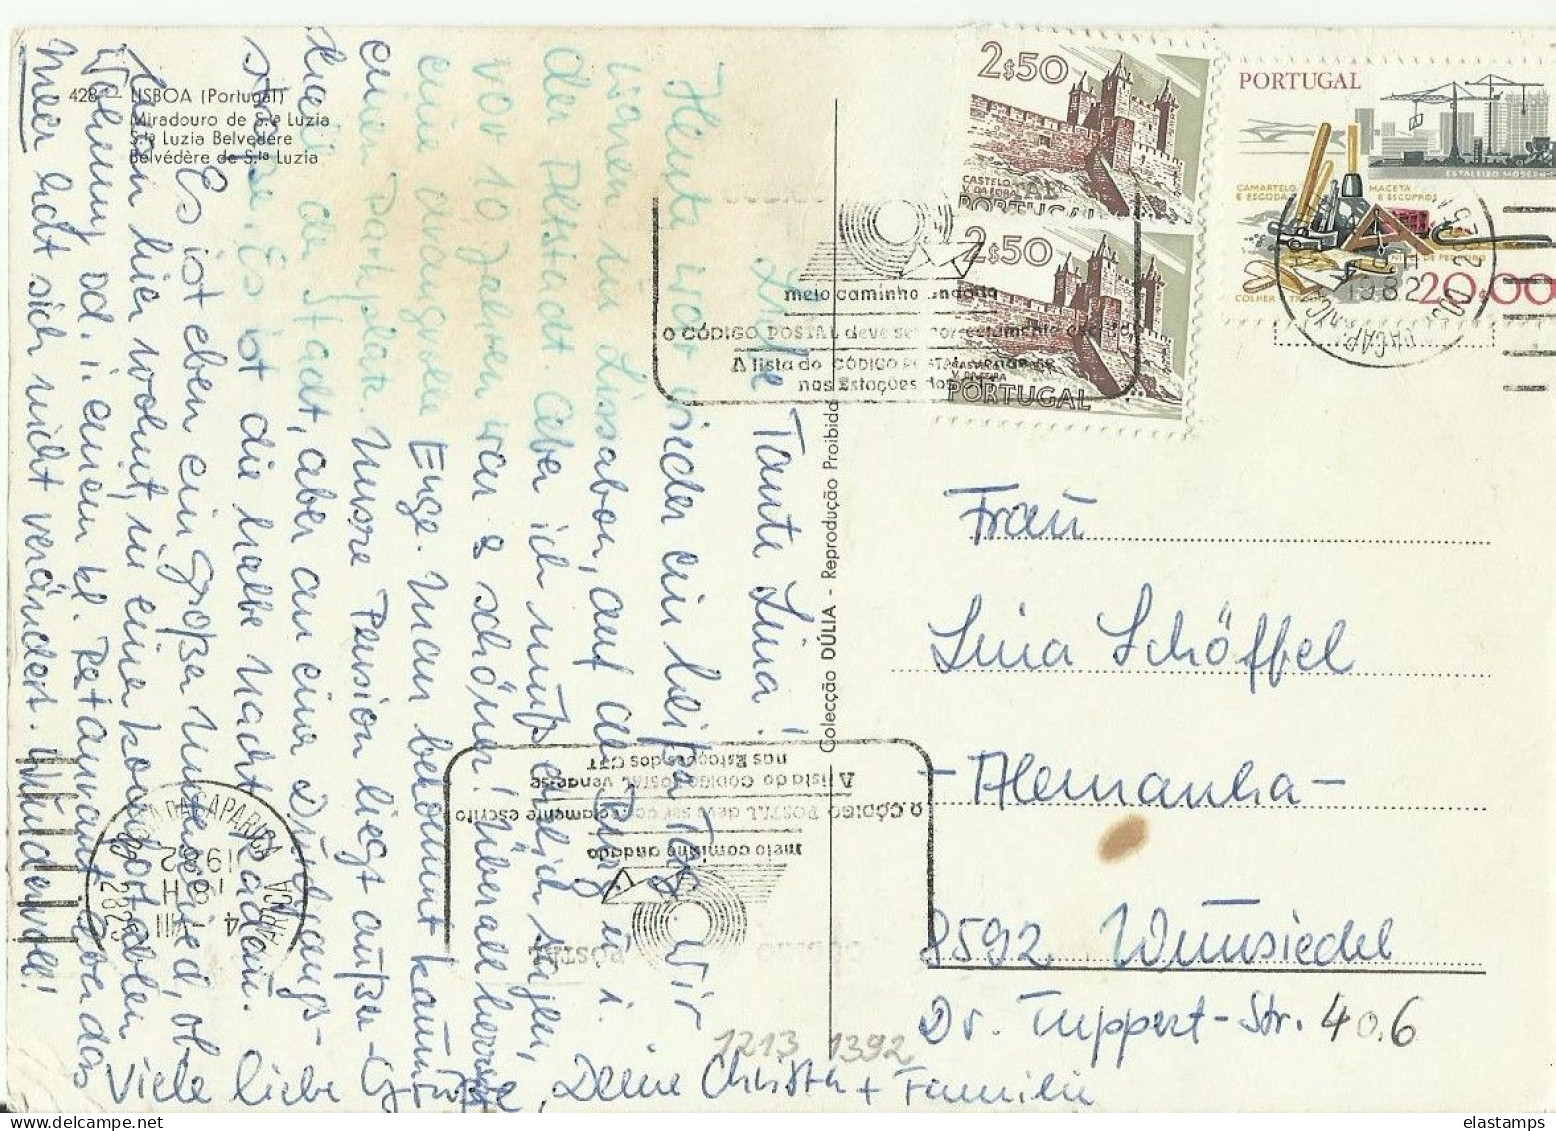 428 - LISBOA (Portugal)
Miradouro de S.ta Luzia
S.ta Luzia Belvedere
Belvédère de S.ta Luzia
Liebe Tante Lina!
Heute war wieder ein heißer Tag. Wir
waren in Lissabon, auf der Burg u. i.
der Altstadt. Aber ich muß ehrlich sagen,
vor 10 Jahren war es schöner! Überall herrscht
eine drangvolle Enge. Man bekommt kaum
einen Parkplatz. Unsere Pension liegt außer-
halb der Stadt, aber an einer Durchgangs-
straße. Es ist die halbe Nacht Radau.
Es ist eben ein großer Unterschied, ob
man hier wohnt, in einer komfortablen
Wohnung od. i. einem kl. Restaurant. Nur das
Meer hat sich nicht verändert. Wundervoll!
Viele liebe Grüße, Deine Christa + Familie
Colecção DÚLIA - Reprodução Proibida
2$50
CASTELO
V. DA FEIRA
PORTUGAL
2$50
V. DA FEIRA
PORTUGAL
PORTUGAL
ESTALEIRO MODERNO
CAMARTELO
E ESCODA
MACETA
E ESCOPROS
COLHER
20.00
meio caminho andado
O CÓDIGO POSTAL deve ser correctamente escrito
A lista do CÓDIGO POSTAL
nas Estações dos
CÓDIGO POSTAL
meio caminho andado
O CÓDIGO POSTAL deve ser correctamente escrito
A lista do CÓDIGO POSTAL vende-se
nas Estações dos CTT
COSTA DA CAPARICA
1982
18 H
4 VIII
2825
Frau
Lina Schöffel
- Alemanha -
8592 Wunsiedel
Dr. Tuppert-Str. 40.6
1213 1392
elastamps